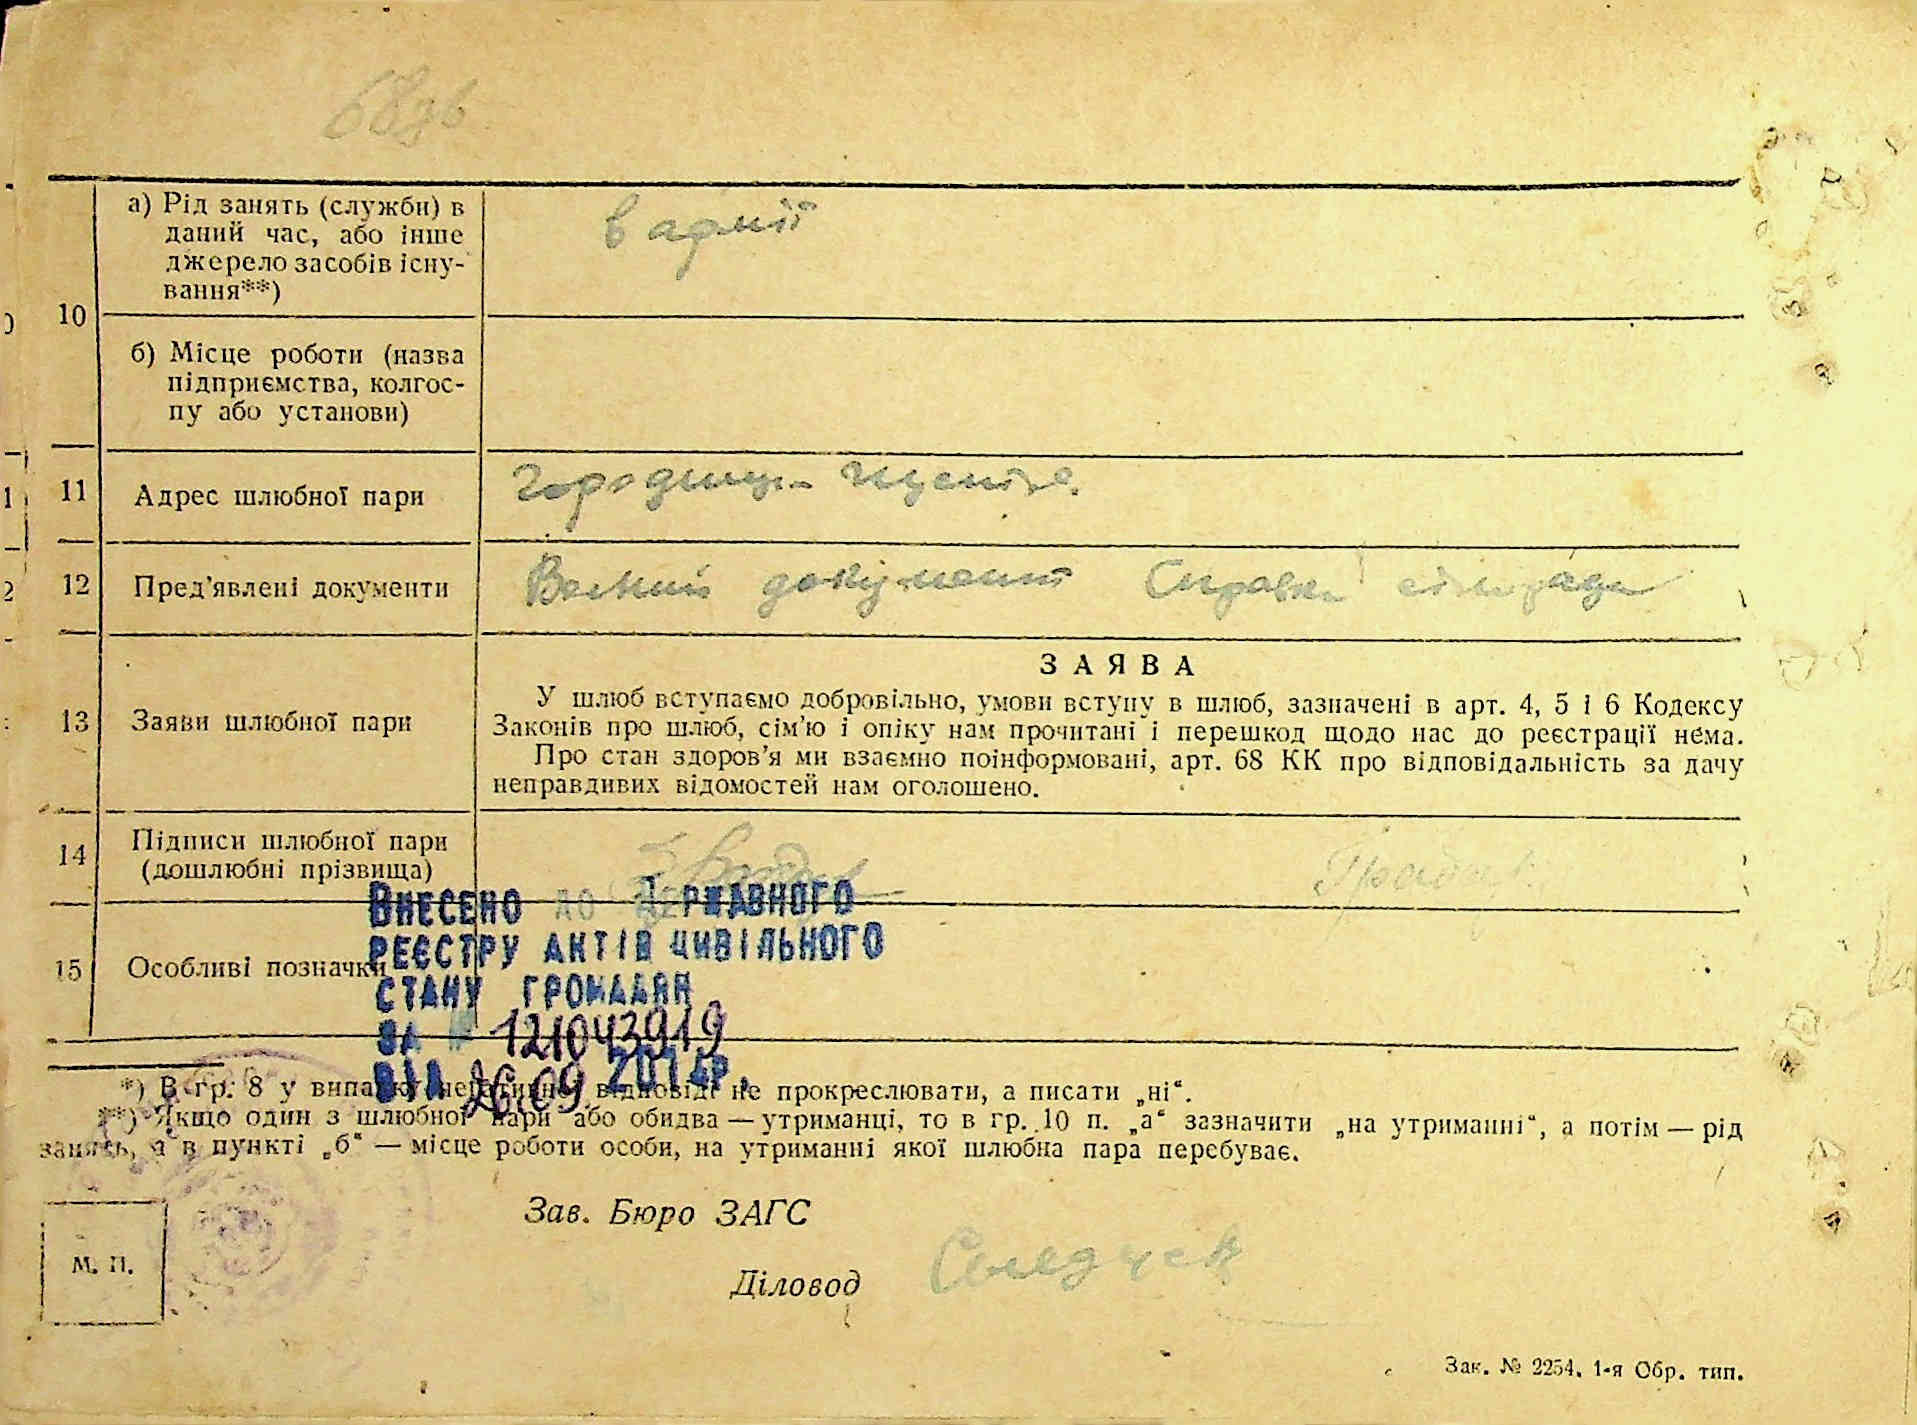 10
а) Рід занять (служби) в
даний час, або інше
джерело засобів існу-
вання**)
в армії
б) Місце роботи (назва
підприємства, колгос-
пу або установи)
11
Адрес шлюбної пари
12
Пред'явлені документи
документ Справка сільради
13
Заяви шлюбної пари
ЗАЯВА
У шлюб вступаємо добровільно, умови вступу в шлюб, зазначені в арт. 4, 5 і 6 Кодексу
Законів про шлюб, сім'ю і опіку нам прочитані і перешкод щодо нас до реєстрації нема.
Про стан здоров'я ми взаємно поінформовані, арт. 68 КК про відповідальність за дачу
неправдивих відомостей нам оголошено.
14
Підписи шлюбної пари
(дошлюбні прізвища)
15
Особливі позначки
ВНЕСЕНО ДО ДЕРЖАВНОГО
РЕЄСТРУ АКТІВ ЦИВІЛЬНОГО
СТАНУ ГРОМАДЯН
ЗА № 121043919
ВІД 26.09. 2014Р.
*) В гр. 8 у випадку негативної відповіді не прокреслювати, а писати „ні“.
**) Якщо один з шлюбної пари або обидва — утриманці, то в гр. 10 п. „а“ зазначити „на утриманні“, а потім — рід
занять, а в пункті „б“ — місце роботи особи, на утриманні якої шлюбна пара перебуває.
Зав. Бюро ЗАГС
М. П.
Діловод
Зак. № 2254. 1-я Обр. тип.